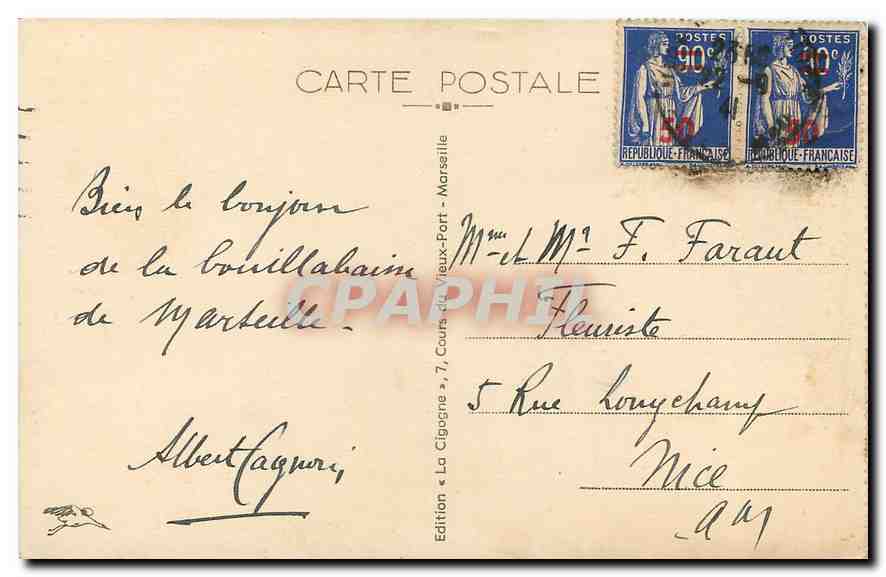 CARTE POSTALE
POSTES
90c
50
RÉPUBLIQUE-FRANÇAISE
POSTES
90c
50
RÉPUBLIQUE-FRANÇAISE
41
Bien le bonjour
de la bouillabaisse
de Marseille -
Albert
Edition « La Cigogne », 7, Cours du Vieux-Port - Marseille
CPAPHIL
Mme et Mr F. Faraut
Fleuriste
5 Rue Longchamp
Nice
AM